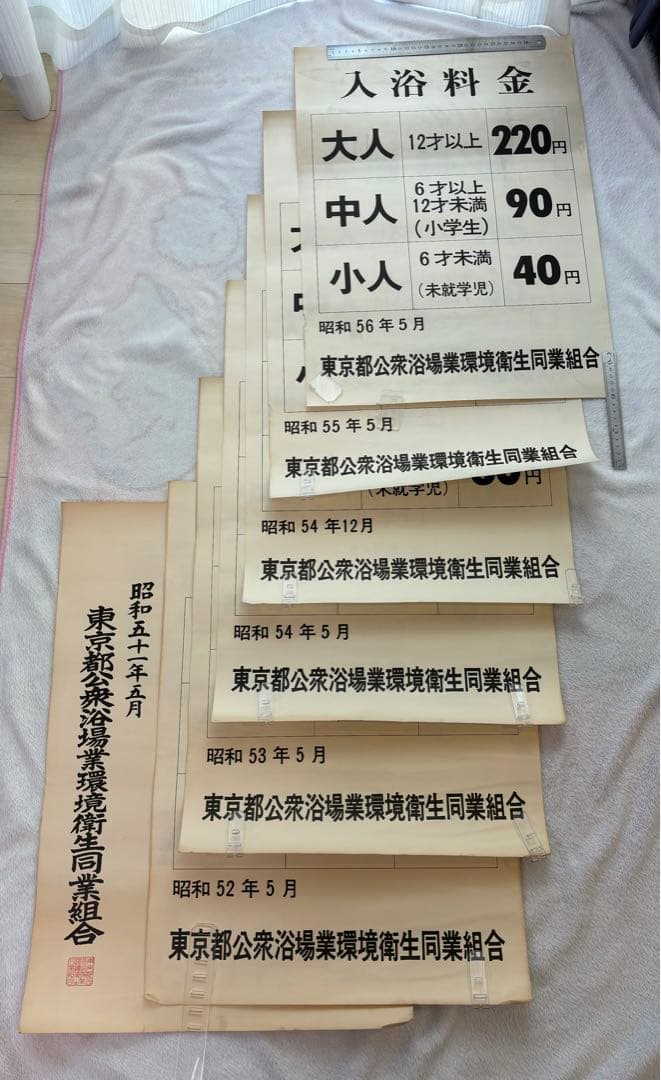 入浴料金
大人 12才以上 220円
中人 6才以上 12才未満 (小学生) 90円
小人 6才未満 (未就学児) 40円
昭和56年5月
東京都公衆浴場業環境衛生同業組合
昭和 55年5月
東京都公衆浴場業環境衛生同業組合
(未就学児) 円
昭和 54年12月
東京都公衆浴場業環境衛生同業組合
昭和 54年5月
東京都公衆浴場業環境衛生同業組合
昭和 53年5月
東京都公衆浴場業環境衛生同業組合
昭和 52年5月
東京都公衆浴場業環境衛生同業組合
昭和五十一年五月
東京都公衆浴場業環境衛生同業組合